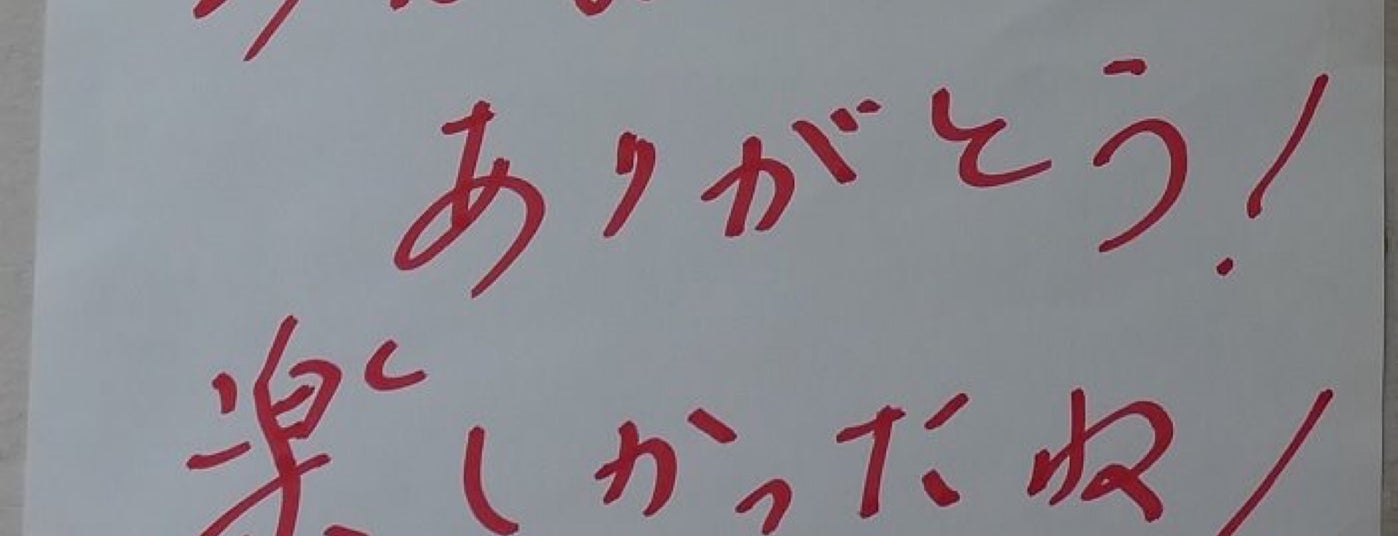 ありがとう!
楽しかったね!